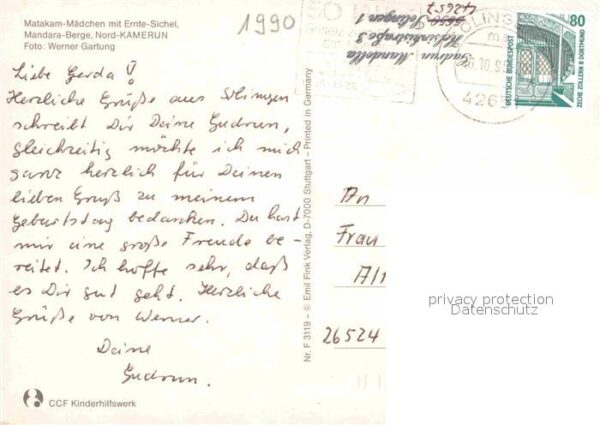 Matakam-Mädchen mit Ernte-Sichel,
Mandara-Berge, Nord-KAMERUN
Foto: Werner Gartung
1990
Liebe Gerda
Herzliche Grüße aus Solingen
schreibt Dir Deine Gudrun,
gleichzeitig möchte ich mich
ganz herzlich für Deinen
lieben Gruß zu meinem
Geburtstag bedanken. Du hast
mir eine große Freude be-
reitet. Ich hoffe sehr, daß
es Dir gut geht. Herzliche
Grüße von Werner.
Deine
Gudrun.
CCF Kinderhilfswerk
Nr. F 3119 – © Emil Fink Verlag, D-7000 Stuttgart - Printed in Germany
Gudrun
Helsinkistraße 3
5650 Solingen 1
42657
SOLINGEN
4265
80
DEUTSCHE BUNDESPOST
ZECHE ZOLLERN II DORTMUND
An
Frau
26524
privacy protection
Datenschutz